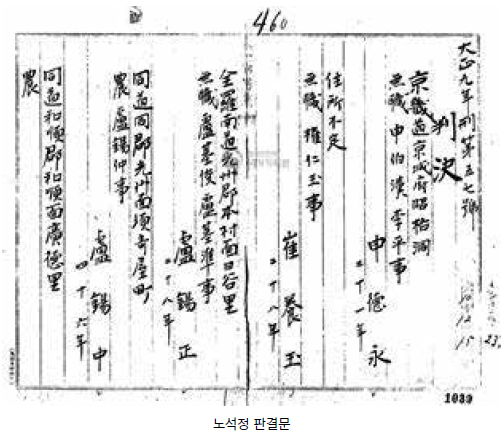 460
大正九年刑第五七號
判決
京畿道京城府昭格洞
無職 申伯漢 李平事
申德永
二十一年
住所不定
無職 權仁玉事
崔養玉
二十八年
全羅南道光州郡本村面日谷里
無職 盧基俊 盧基準事
盧錫正
二十八年
同道同郡光州面須奇屋町
農 盧錫仲事
盧錫中
四十六年
同道和順郡和順面廣德里
農
1039
노석정 판결문